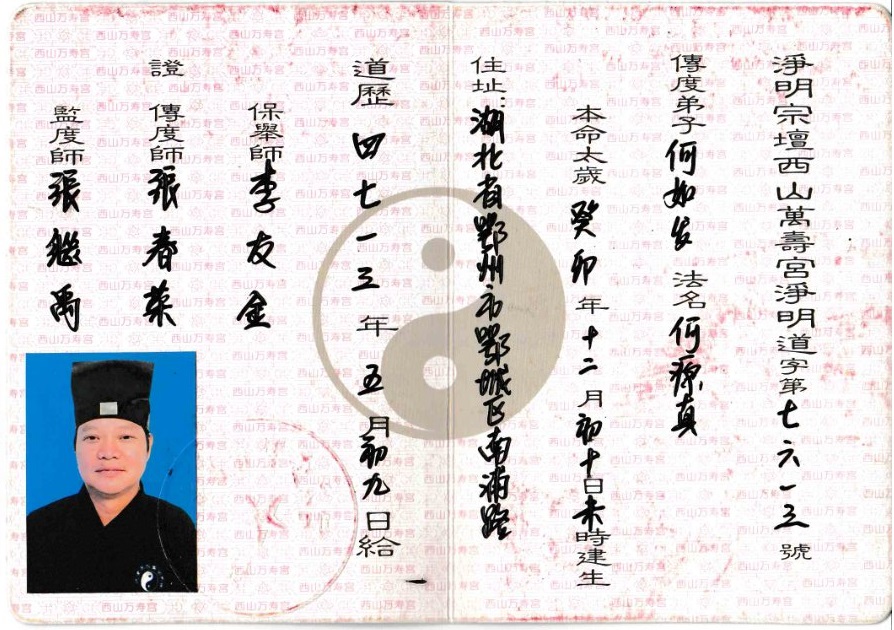 淨明宗壇西山萬壽宮淨明道字第七六一三號
傳度弟子何如发 法名何源真
本命太歲癸卯年十二月初十日未時建生
住址:湖北省鄂州市鄂城区南浦路
道歷四七一三年五月初九日給
保舉師李友金
證 傳度師張春菜
監度師張繼禹